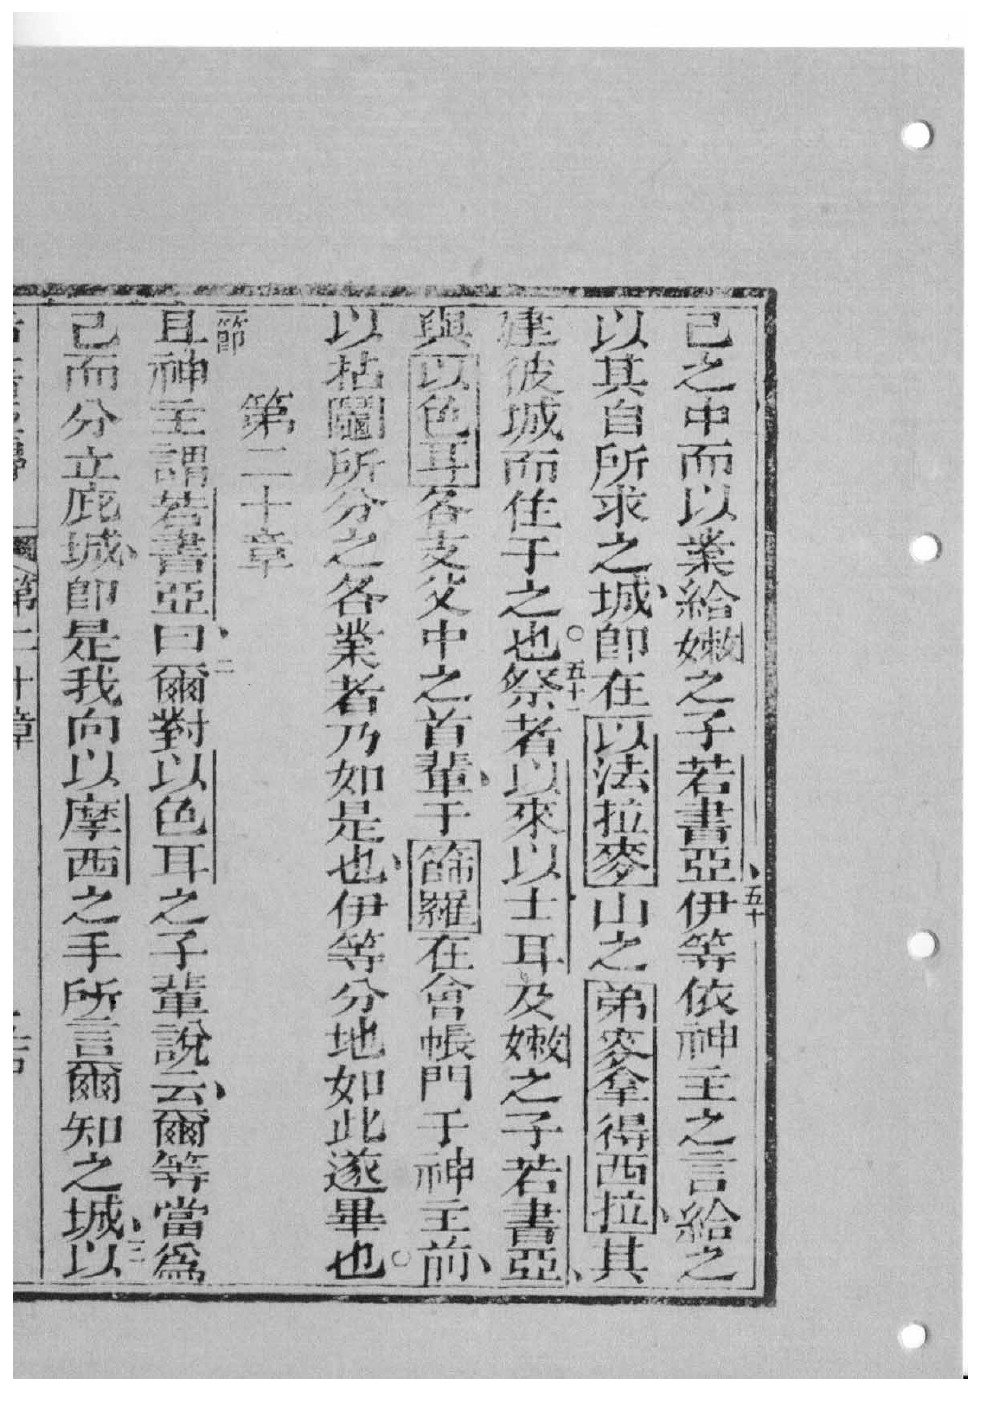 己之中而以業給嫩之子若書亞、五十伊等依神主之言給之
以其自所求之城、卽在以法拉麥山之弟麥拿得西拉、其
建彼城而住于之也。五十一祭者以來以士耳及嫩之子若書亞、
與以色耳各支父中之首輩、于篩羅在會帳門于神主前、
以拈鬮所分之各業者乃如是也、伊等分地如此遂畢也。
第二十章
一節且神主謂若書亞曰、二爾對以色耳之子輩說云、爾等當爲
己而分立庇城、卽是我向以摩西之手所言爾知之城、三以
第二十章